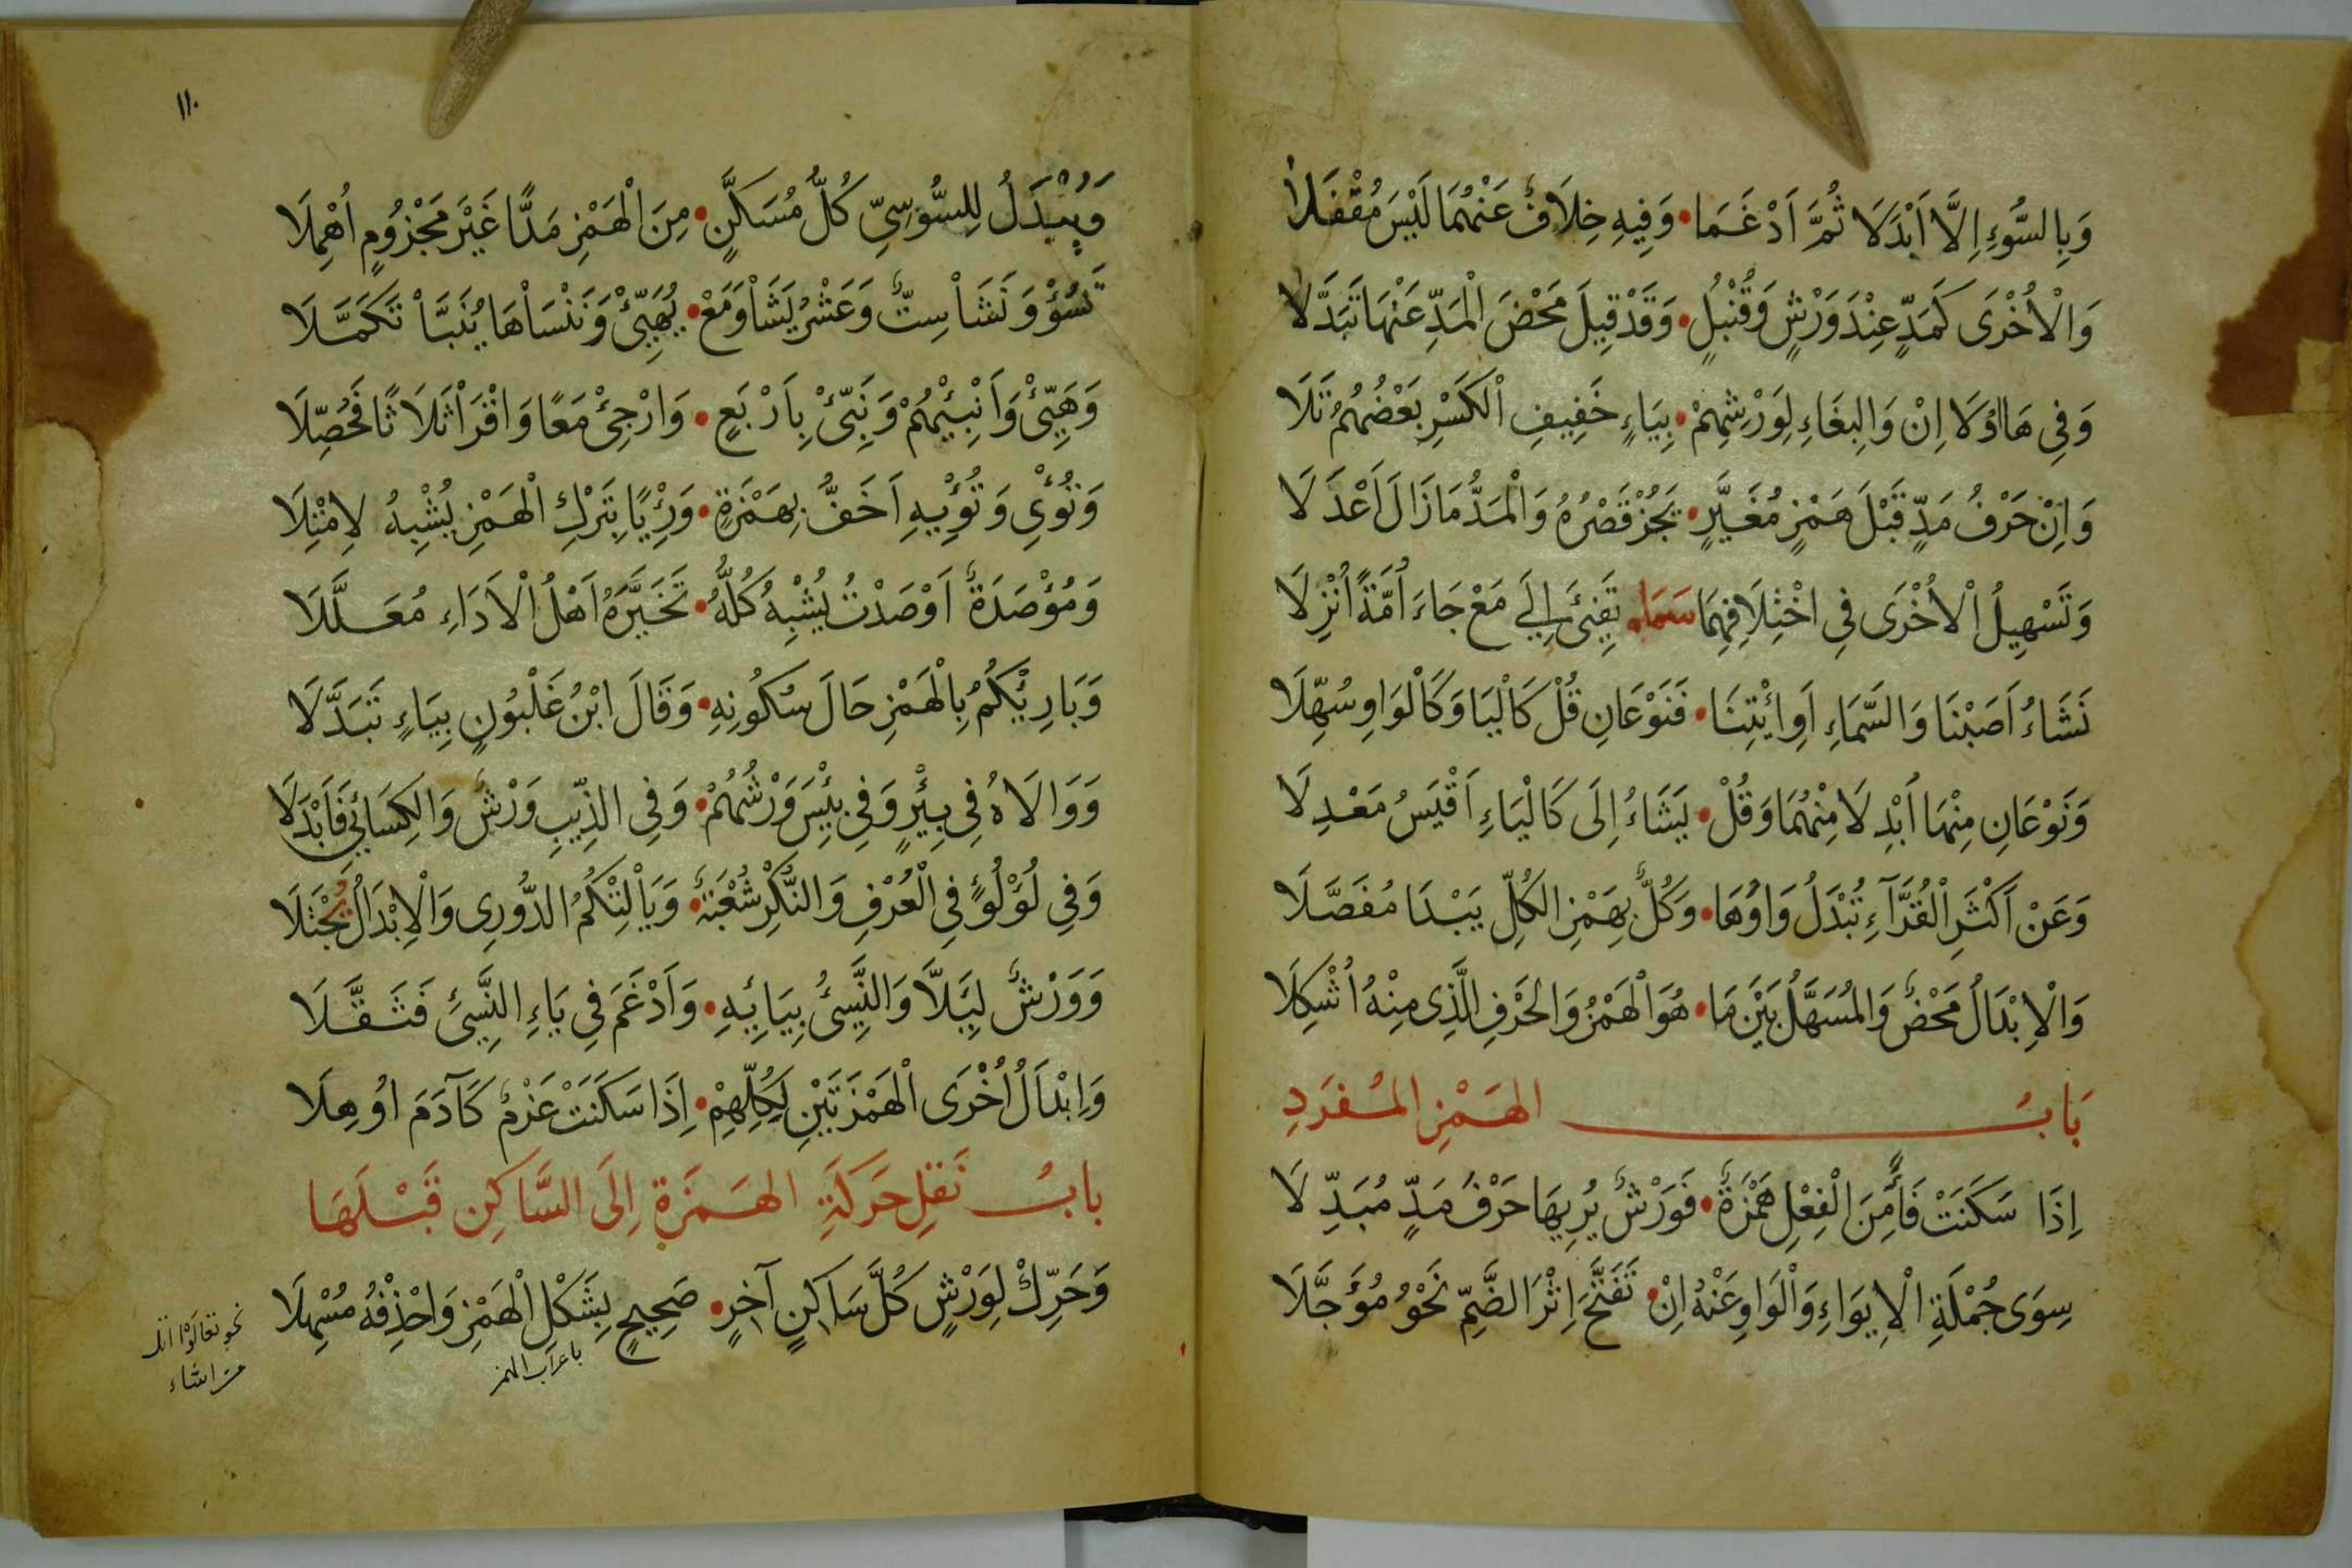 وَبِالسُّوءِ اِلَّا اَبْدَلَا ثُمَّ اَدْغَمَا • وَفِيهِ خِلَافٌ عَنْهُمَا لَيْسَ مُقْفَلَا
وَالْاُخْرَى كَمَدٍّ عِنْدَ وَرْشٍ وَقُنْبُلٍ • وَقَدْ قِيلَ مَحْضَ الْمَدِّ عَنْهَا تَبَدَّلَا
وَفِي هَااوُلَا اِنْ وَالْبِغَاءِ لِوَرْشِهِمْ • بِيَاءٍ خَفِيفِ الْكَسْرِ بَعْضُهُمُ تَلَا
وَاِنْ حَرْفُ مَدٍّ قَبْلَ هَمْزٍ مُغَيَّرٍ • يَجُزْ قَصْرُهُ وَالْمَدُّ مَا زَالَ اَعْدَلَا
وَتَسْهِيلُ الْاُخْرَى فِي اخْتِلَافِهِمَا سَمَا • تَفِيئَ اِلَى مَعْ جَاءَ اُمَّةً اُنْزِلَا
نَشَاءُ اَصَبْنَا وَالسَّمَاءِ اَوِ ائْتِنَا • فَنَوْعَانِ قُلْ كَالْيَا وَكَالْوَاوِ سُهِّلَا
وَنَوْعَانِ مِنْهَا اُبْدِلَا مِنْهُمَا وَقُلْ • يَشَاءُ اِلَى كَالْيَاءِ اَقْيَسُ مَعْدِلَا
وَعَنْ اَكْثَرِ الْقُرَّآءِ تُبْدَلُ وَاوُهَا • وَكُلٌّ بِهَمْزِ الكُلِّ يَبْدَا مُفَصَّلَا
وَالْاِبْدَالُ مَحْضٌ وَالْمُسَهَّلُ بَيْنَ مَا • هُوَ الْهَمْزُ وَالْحَرْفِ الَّذِى مِنْهُ اُشْكِلَا
بَابُ الهَمْزِ المُفْرَدِ
اِذَا سَكَنَتْ فَاءً مِنَ الْفِعْلِ هَمْزَةٌ • فَوَرْشٌ يُرِيهَا حَرْفَ مَدٍّ مُبَدِّلَا
سِوَى جُمْلَةِ الْاِيوَاءِ وَالْوَاوِ عَنْهُ اِنْ • تَفَتَّحَ اِثْرَ الضَّمِّ نَحْوُ مُؤَجَّلَا
١١٠
وَيُبْدَلُ لِلسُّوسِيِّ كُلُّ مُسَكَّنٍ • مِنَ الْهَمْزِ مَدًّا غَيْرَ مَجْزُومٍ اُهْمِلَا
تَسُؤْ وَنَشَاْ سِتٌّ وَعَشْرُ يَشَاْ وَمَعْ • يُهَيِّئْ وَنَنْسَاْهَا يُنَبَّاْ تَكَمَّلَا
وَهَيِّئْ وَاَنْبِئْهُمْ وَنَبِّئْ بِاَرْبَعٍ • وَارْجِئْ مَعًا وَاقْرَاْ ثَلَاثًا فَحَصِّلَا
وَتُؤْيِ وَتُؤْيِهِ اَخَفُّ بِهَمْزَةٍ • وَرِئْيًا بِتَرْكِ الْهَمْزِ يُشْبِهُ لِامْتِلَا
وَمُؤْصَدَةٌ اَوْصَدْتُ يُشْبِهُ كُلُّهُ • تَخَيَّرَهُ اَهْلُ الْاَدَاءِ مُعَلَّلَا
وَبَارِئْكُمُ بِالْهَمْزِ حَالَ سُكُونِهِ • وَقَالَ ابْنُ غَلْبُونٍ بِيَاءٍ تَبَدَّلَا
وَوَالَاهُ فِي بِئْرٍ وَفِي بِئْسَ وَرْشُهُمْ • وَفِي الذِّيبِ وَرْشٌ وَالْكِسَائِي فَاَبْدَلَا
وَفِي لُؤْلُوءٍ فِي الْعُرْفِ وَالنُّكْرِ شُعْبَةٌ • وَيَاْلِتْكُمُ الدُّورِى وَالْاِبْدَالُ يُجْتَلَا
وَوَرْشٌ لِيَلَّا وَالنَّسِيُّ بِيَائِهِ • وَاَدْغَمَ فِي يَاءِ النَّسِيئِ فَثَقَّلَا
وَاِبْدَالُ اُخْرَى الْهَمْزَتَيْنِ لِكُلِّهِمْ • اِذَا سَكَنَتْ عَزْمٌ كَآدَمَ اوُهِلَا
بابُ نَقلِ حَرَكَةِ الهَمزَةِ اِلَى السَّاكِنِ قَبْلَهَا
وَحَرِّكْ لِوَرْشٍ كُلَّ سَاكِنٍ آخِرٍ • صَحِيحٍ بِشَكْلِ الْهَمْزِ وَاحْذِفْهُ مُسْهِلَا
باعراب الهمز
نحو تعالوا اتل